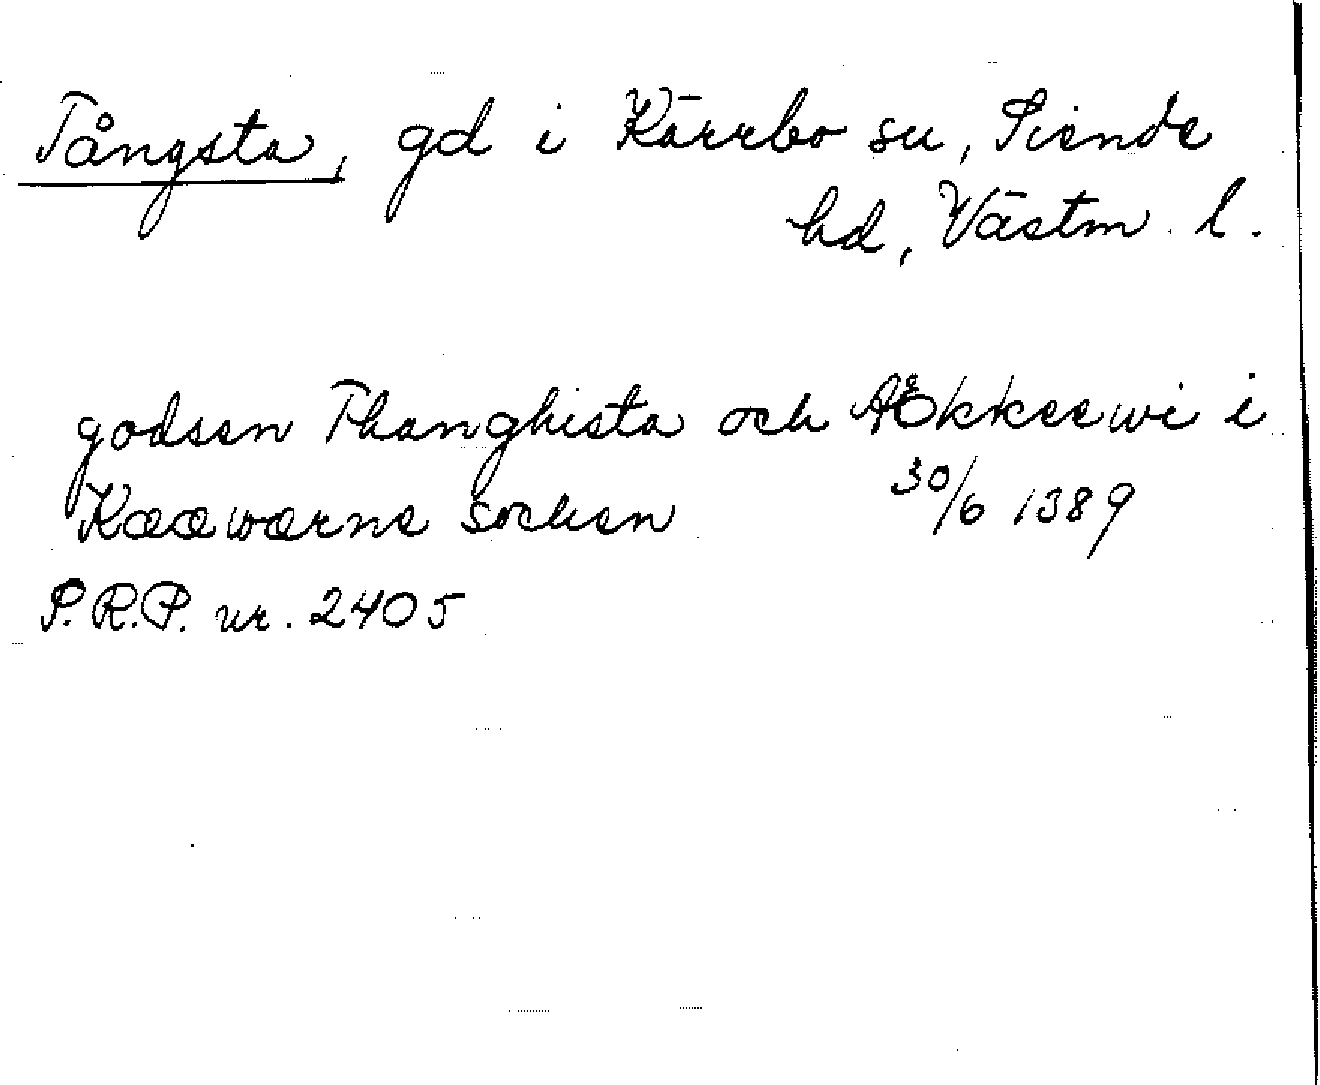 Tångsta, gd i Kärrbo sn, Siende
hd, Västm. l.
godsen Thanghista och i
Kææwærne socken 30/6 1389
S.R.P. nr. 2405